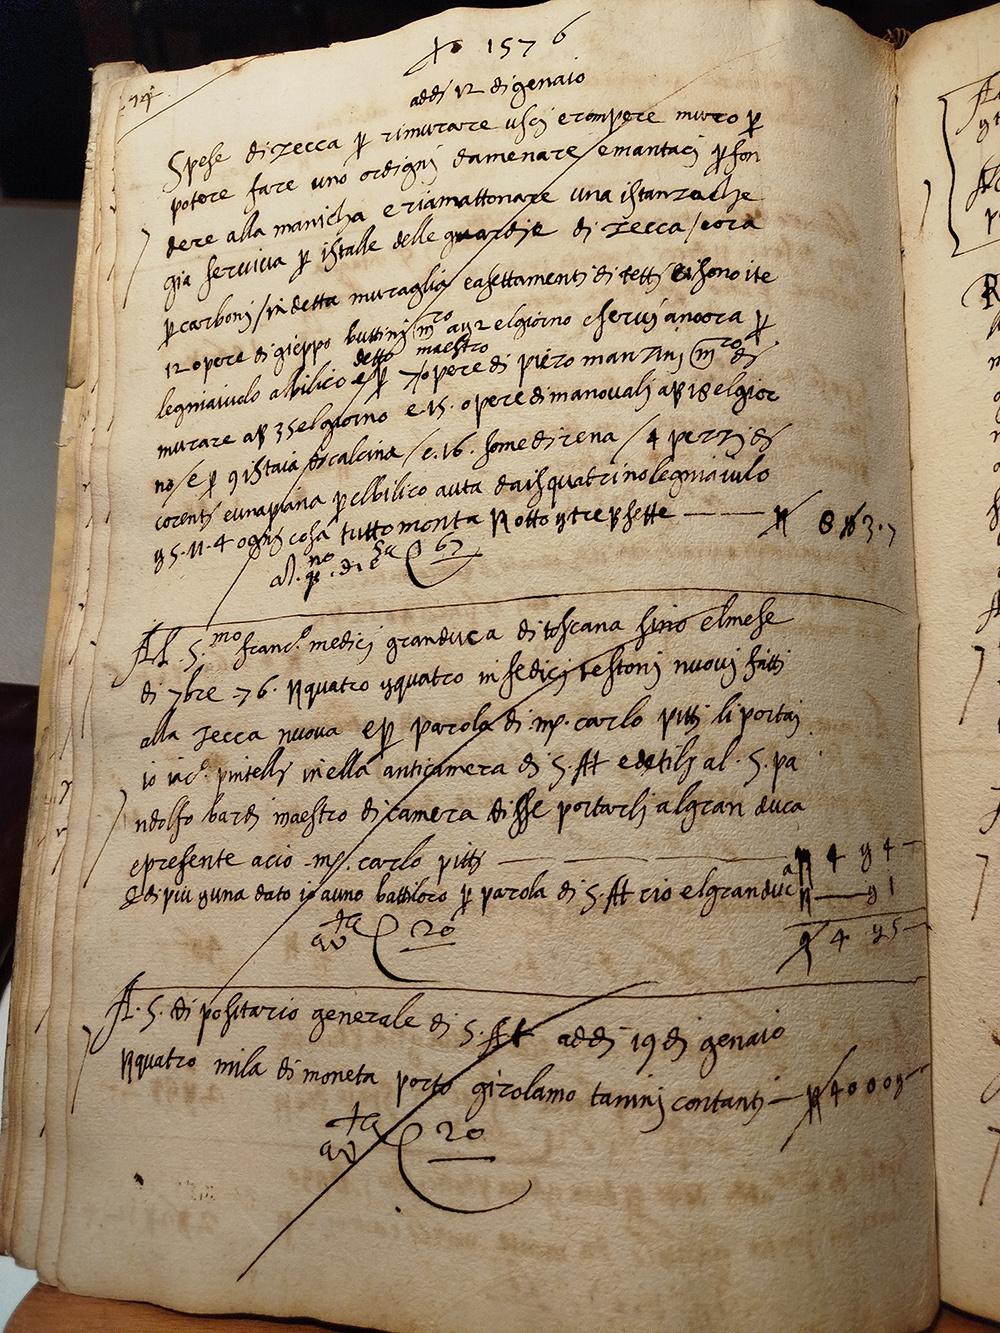 1576
74
addi 12 di genaio
Spese di zecca p rimurare usci e rompere muro p
potere fare uno ordigni damenare e mantaci p fon
dere alla manicha e riamattonare una istanza che
gia serviva p istalle delle guardie di zecca / e ora
p carboni / in detta muraglia e asettamenti di tetti ei sono ite
12 opere di gieppo buttini m ro a y 2 el giorno e servj ancora p
detto maestro
legniaiuolo al bilico e p 7 opere di piero manzini m ro di
murare a β 35 el giorno e 15. opere di manovali a β 18 el gior
no / e p 9 istaia di calcina / e. 16. some di rena / 4 pezzi di
corenti e una piana p el bilico auta da isquatrino legniaiuolo
y 5. 11. 4 ogni cosa tutto monta otto y tre β sette — 8 y 3. 7
al. q. no di ca 67
Al. S. mo franc.o medici granduca di toscana sino el mese
di 7bre 76. quatro y quatro in sedici testoni nuovi fatti
alla zecca nuova e p parola di mp. carlo pitti li portai
io iac.o pintelli in ella anticamera di S. At e detili al. S. pa
ndolfo bardi maestro di camera disse portarli al gran duca
e presente a cio mp. carlo pitti — 4 y 4
E di piu y una dato io a uno battiloro p parola di S. At cio el granduca — y 1
av ta 20
4 y 5
Al. S. dipositario generale di S. At addi 19 di genaio
quatro mila di moneta porto girolamo tanini contanti — 4000
av ta 20